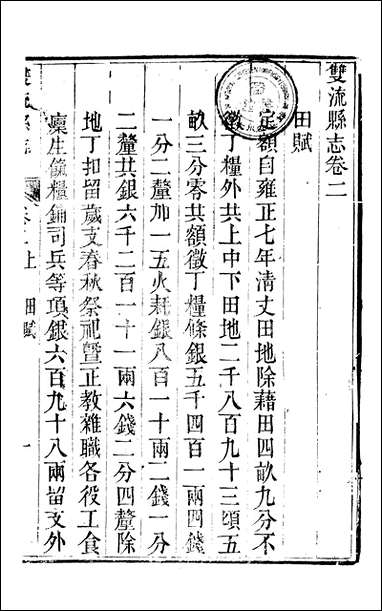 雙流縣志卷二
田賦
定額自雍正七年清丈田地除藉田四畝九分不
徵丁糧外共上中下田地二千八百九十三頃五
畝三分零共額徵丁糧條銀五千四百一兩四錢
一分二釐加一五火耗銀八百一十兩二錢一分
二釐共銀六千二百一十一兩六錢二分四釐除
地丁扣留歲支春秋祭祀暨正教雜職各役工食
廩生餼糧鋪司兵等項銀六百九十八兩留支外
卷二上 田賦 一